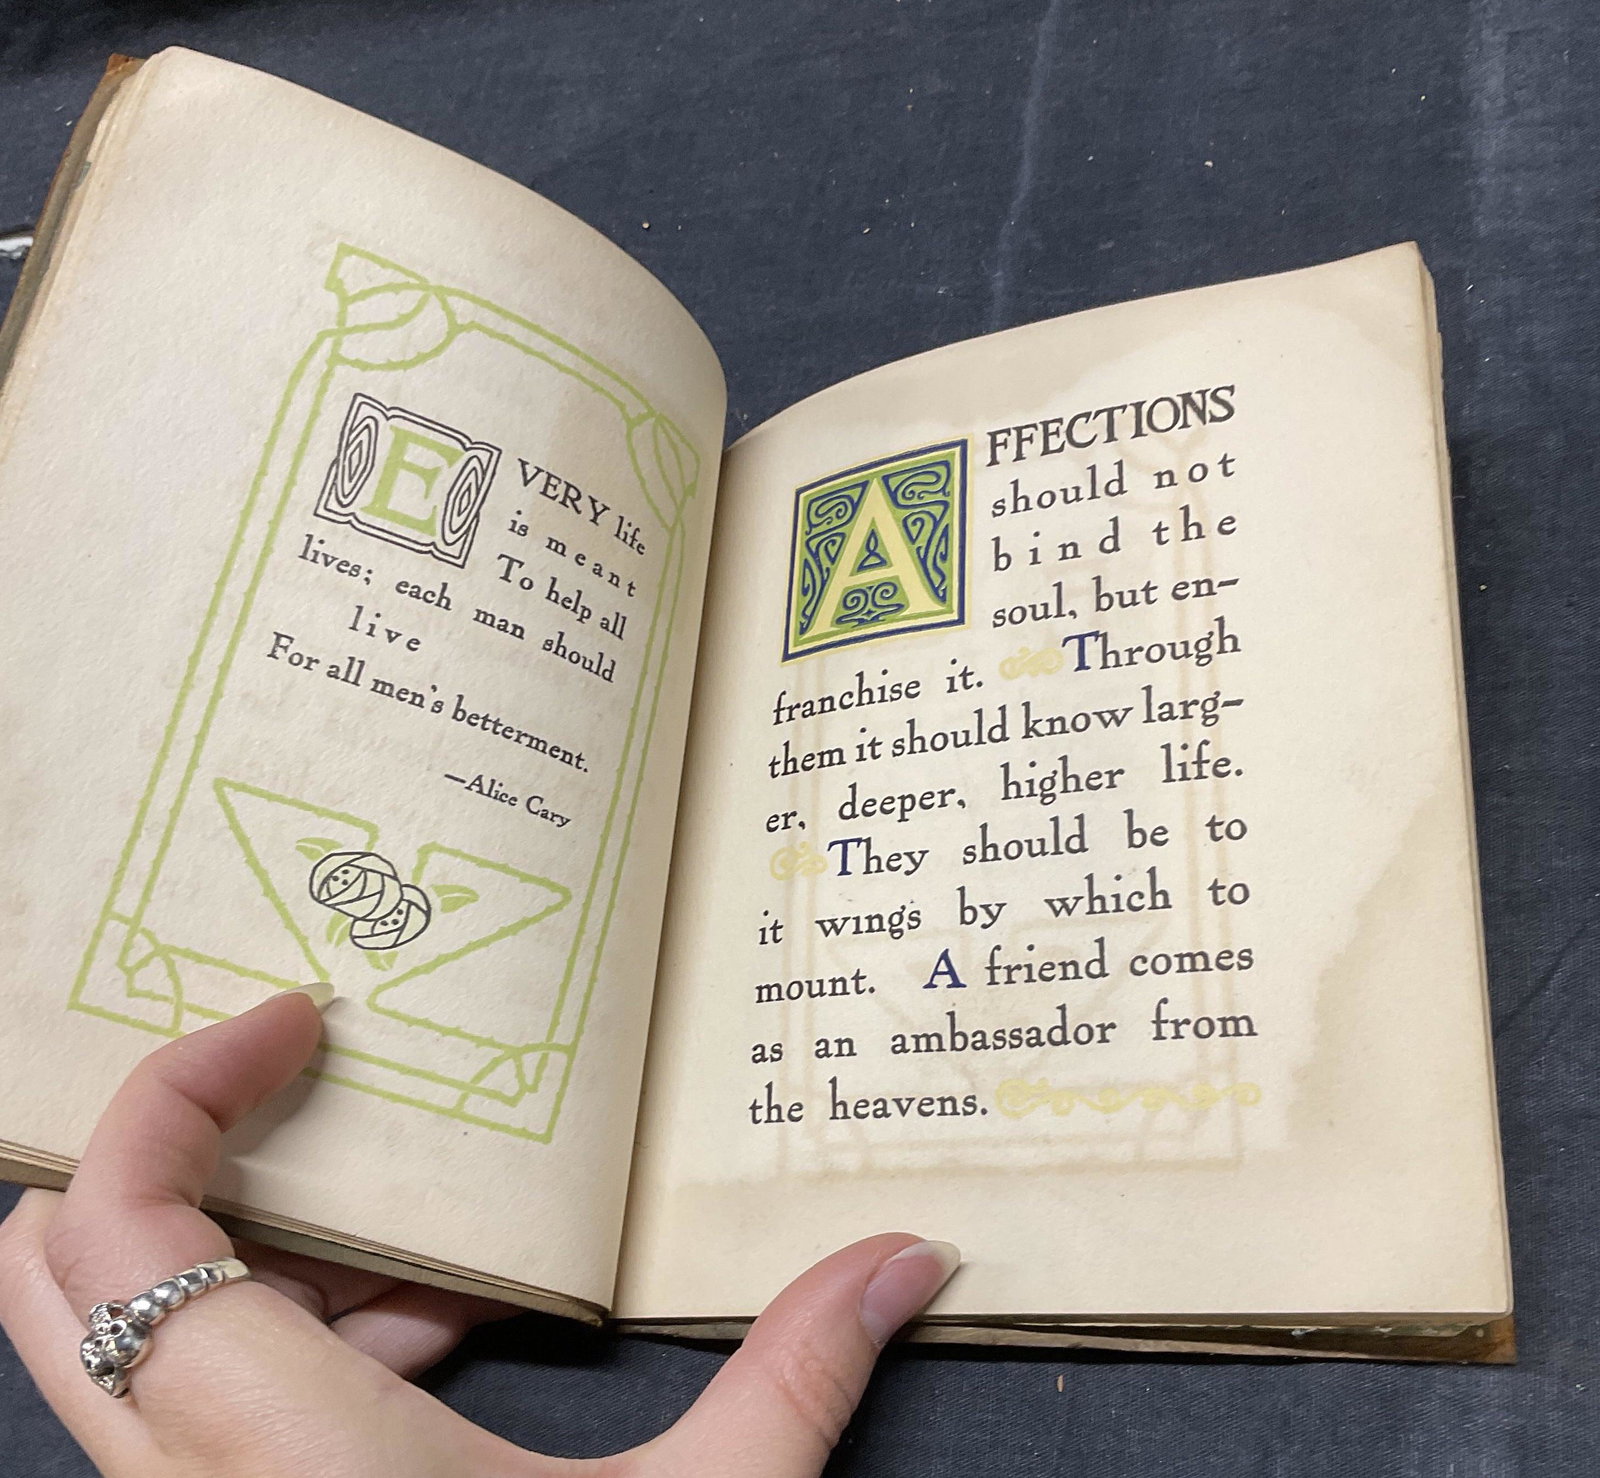 EVERY life
is meant
To help all
lives; each man should
live
For all men's betterment.
—Alice Cary
AFFECTIONS
should not
bind the
soul, but en-
franchise it. Through
them it should know larg-
er, deeper, higher life.
They should be to
it wings by which to
mount. A friend comes
as an ambassador from
the heavens.